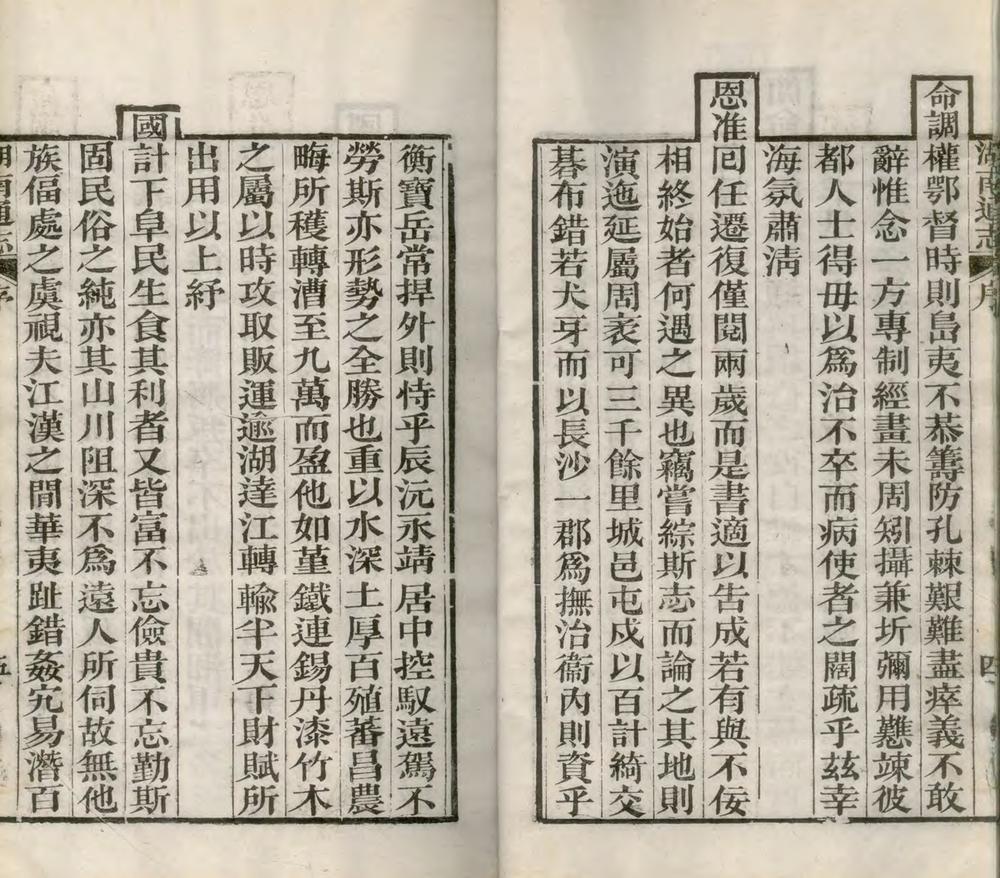 湖南通志 序 四
命調權鄂督時則島夷不恭籌防孔棘艱難盡瘁義不敢
辭惟念一方專制經畫未周矧攝兼圻彌用戁竦彼
都人士得毋以爲治不卒而病使者之闊疏乎茲幸
海氛肅淸
恩准囘任遷復僅閱兩歲而是書適以吿成若有與不佞
相終始者何遇之異也竊嘗綜斯志而論之其地則
演迤延屬周袤可三千餘里城邑屯戍以百計綺交
碁布錯若犬牙而以長沙一郡爲撫治衞內則資乎
衡寶岳常捍外則恃乎辰沅永靖居中控馭遠駕不
勞斯亦形勢之全勝也重以水深土厚百殖蕃昌農
晦所穫轉漕至九萬而盈他如堇鐵連錫丹漆竹木
之屬以時攻取販運逾湖達江轉輸半天下財賦所
出用以上紓
國計下阜民生食其利者又皆富不忘儉貴不忘勤斯
固民俗之純亦其山川阻深不爲遠人所伺故無他
族偪處之虞視夫江漢之閒華夷趾錯姦宄易潛百
湖南通志 序 五